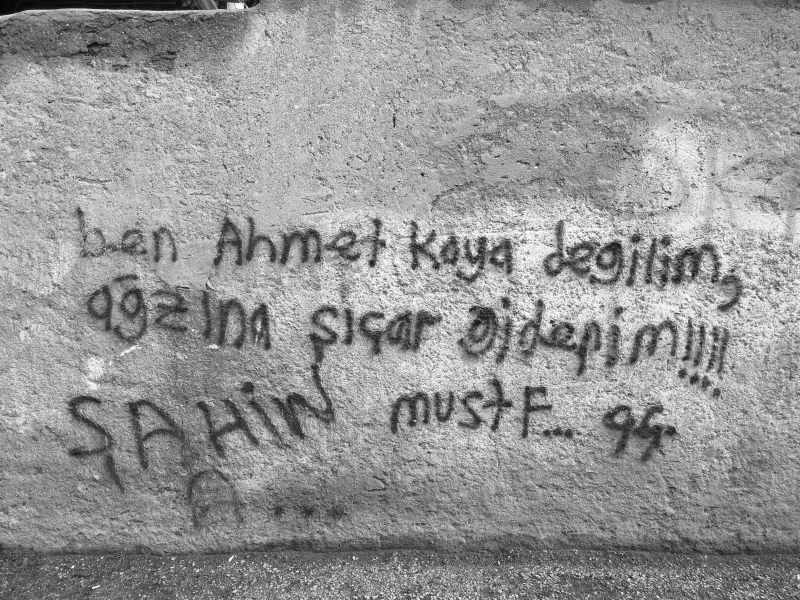 ben Ahmet Kaya degilim,
ağzına sıçar giderim!!!!
ŞAHİN mustF...
A...